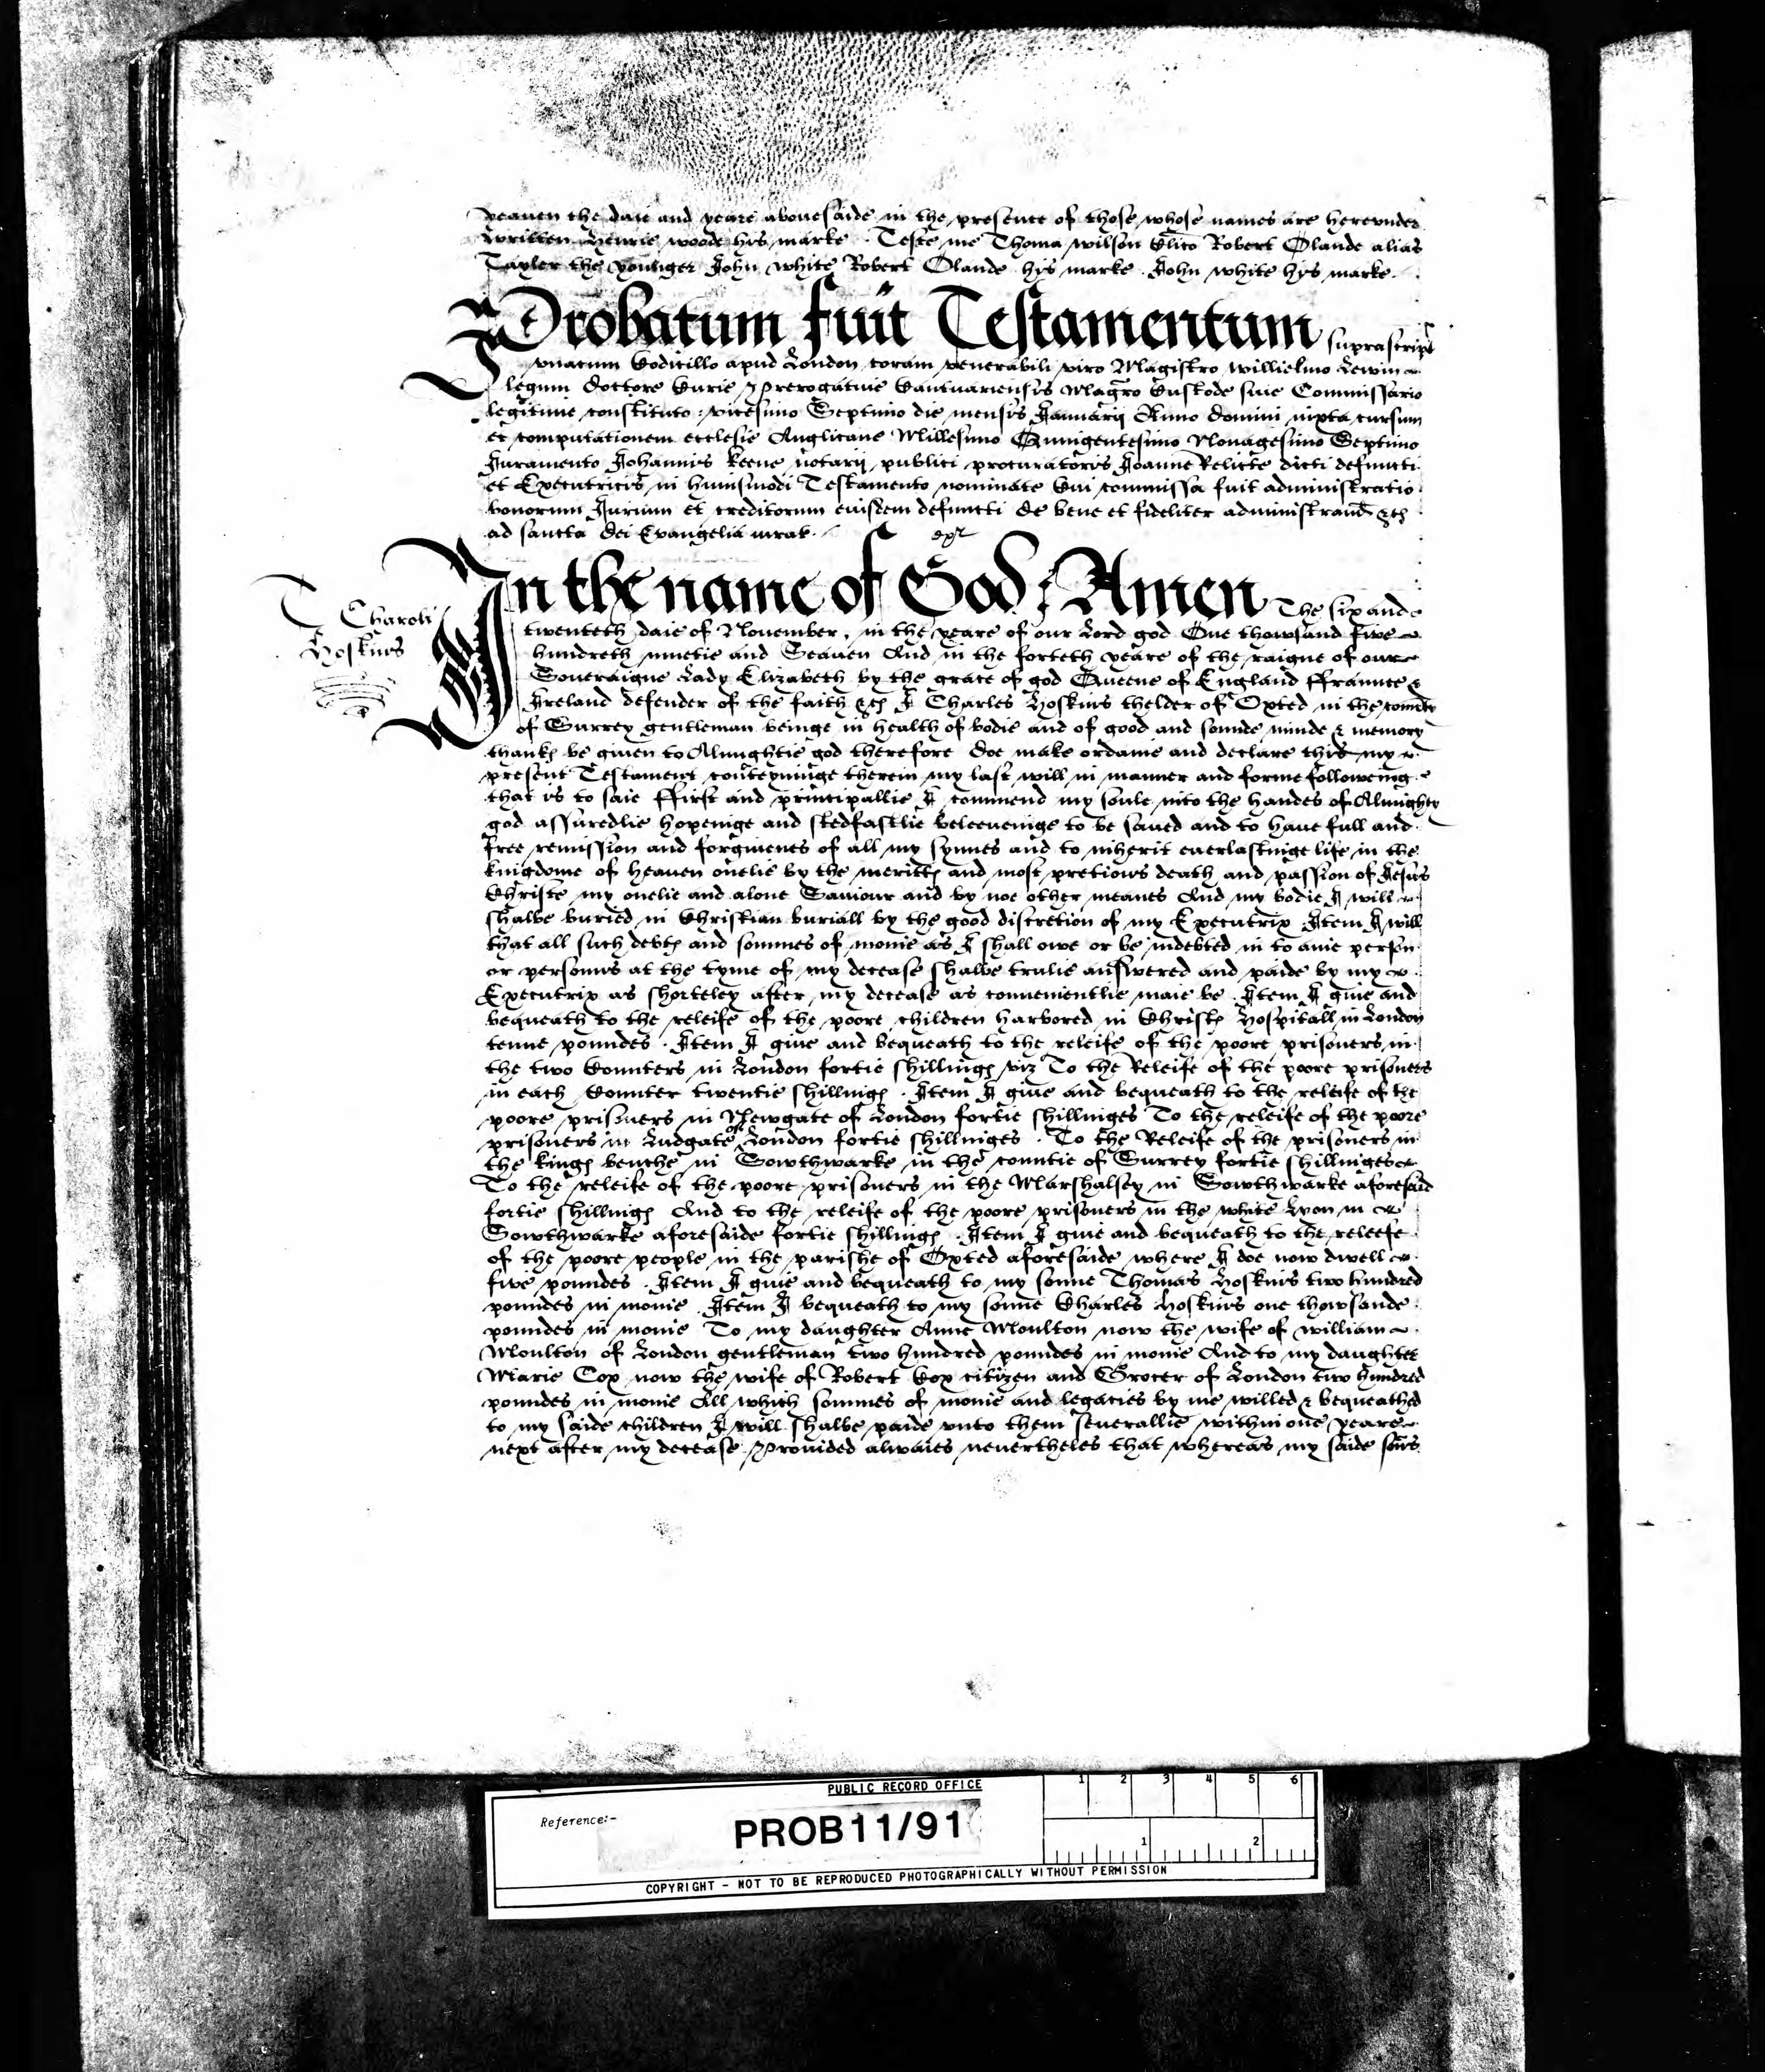 yeauen the daie and yeare abouesaide in the presence of those whose names are herevnder
written Henrie woode his marke . Teste me Thoma wilson Clico Robert Olande alias
Tayler the younger John white Robert Olande hys marke . John white hys marke .
Probatum fuit Testamentum suprascript
vnacum Codicillo apud London coram venerabili viro Magistro willielmo Lewin
legum doctore Curie Prerogatiue Cantuariensis Magro Custode siue Commissario
legitime constituto . vicesimo Septimo die mensis Januarij Anno domini iuxta cursum
et computationem ecclesie Anglicane Millesimo Quingentesimo Nonagesimo Septimo
Juramento Johannis Keene notarij publici procuratoris Joanne Relicte dicti defuncti
et Executricis in huiusmodi Testamento nominate Cui commissa fuit administratio
bonorum Jurium et creditorum eiusdem defuncti de bene et fideliter administrand &c
ad sancta dei Evangelia iurat .
exr
T Charoli
Hoskins
In the name of God Amen The six and
twenteth daie of Nouember , in the yeare of our Lord god One thowsand fiue
hundreth ninetie and Seauen And in the forteth yeare of the raigne of our
Soueraigne Lady Elizabeth by the grace of god Queene of England ffraunce &
Jreland defender of the faith &c J Charles Hoskins thelder of Oxted in the countie
of Surrey gentleman beinge in health of bodie and of good and sounde minde & memory
thankes be giuen to Almightie god therefore doe make ordaine and declare this my
present Testament conteyninge therein my last will in manner and forme followeing
that is to saie ffirst and principallie J commend my soule into the handes of Almighty
god assuredlie hopeinge and stedfastlie beleeueinge to be saued and to haue full and
free remission and forgiuenes of all my synnes and to inherit euerlastinge life in the
kingdome of heauen onelie by the merittes and most pretious death and passion of Jesus
Christe my onelie and alone Sauiour and by noe other meanes And my bodie J will
shalbe buried in Christian buriall by the good discretion of my Executrix Jtem J will
that all such debtes and sommes of monie as J shall owe or be indebted in to anie person
or personns at the tyme of my decease shalbe trulie answered and paide by my
Executrix as shorteley after my decease as convenientlie maie be . Jtem J giue and
bequeath to the releife of the poore children harbored in Christes Hospitall in London
tenne poundes . Jtem J giue and bequeath to the releife of the poore prisoners in
the two Counters in London fortie shillinges viz To the Releife of the poore prisoners
in each Counter twentie shillinges . Jtem J giue and bequeath to the releife of the
poore prisoners in Newgate of London fortie shillinges To the releife of the poore
prisoners in Ludgate of London fortie shillinges . To the Releife of the prisoners in
the kinges benche in Sowthwarke in the countie of Surrey fortie shillinges
To the releife of the poore prisoners in the Marshalsey in Sowthwarke aforesaid
fortie shillinges And to the releife of the poore prisoners in the white Lyon in
Sowthwarke aforesaide fortie shillinges . Jtem J giue and bequeath to the releefe
of the poore people in the parishe of Oxted aforesaide where J doe now dwell
fiue poundes . Jtem J giue and bequeath to my sonne Thomas Hoskins two hundred
poundes in monie Jtem J bequeath to my sonne Charles Hoskins one thowsande
poundes in monie To my daughter Anne Moulton now the wife of william
Moulton of London gentleman two hundred poundes in monie And to my daughter
Marie Cox now the wife of Robert Cox citizen and Grocer of London two hundred
poundes in monie All which sommes of monie and legacies by me willed & bequeathed
to my saide children J will shalbe paide vnto them seuerallie within one yeare
next after my decease Prouided alwaies neuertheles that whereas my saide sons
PUBLIC RECORD OFFICE
1 2 3 4 5 6
Reference:-
PROB11/91
1 2
COPYRIGHT - NOT TO BE REPRODUCED PHOTOGRAPHICALLY WITHOUT PERMISSION